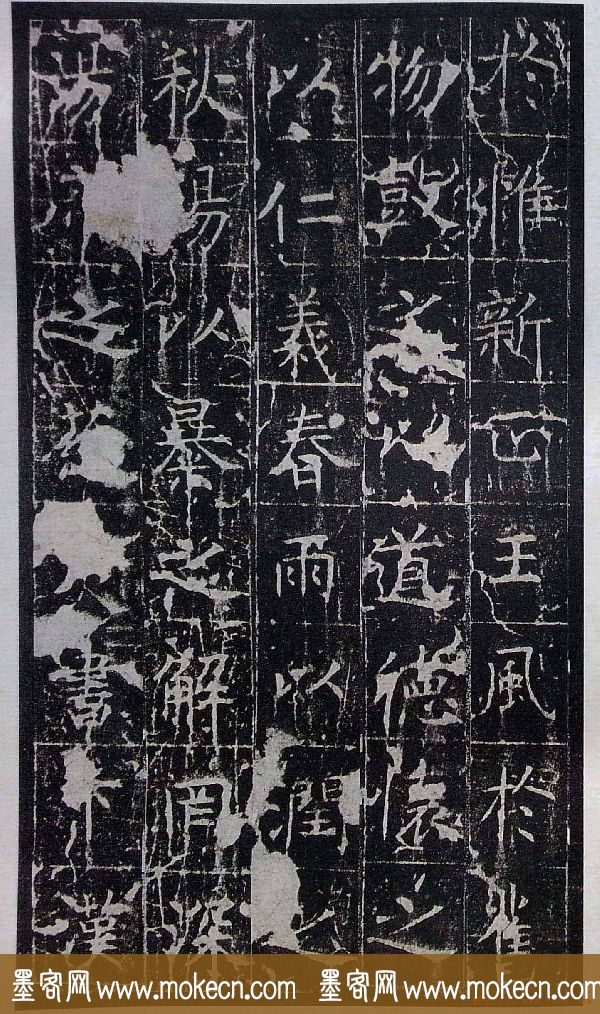 於惟新正王風於雀
物鼓之以道德懷之
以仁義春雨以潤之
秋陽以暴之解罔深
湯之書下漢
墨客网 www.mokecn.com 墨客网 www.mokecn.com